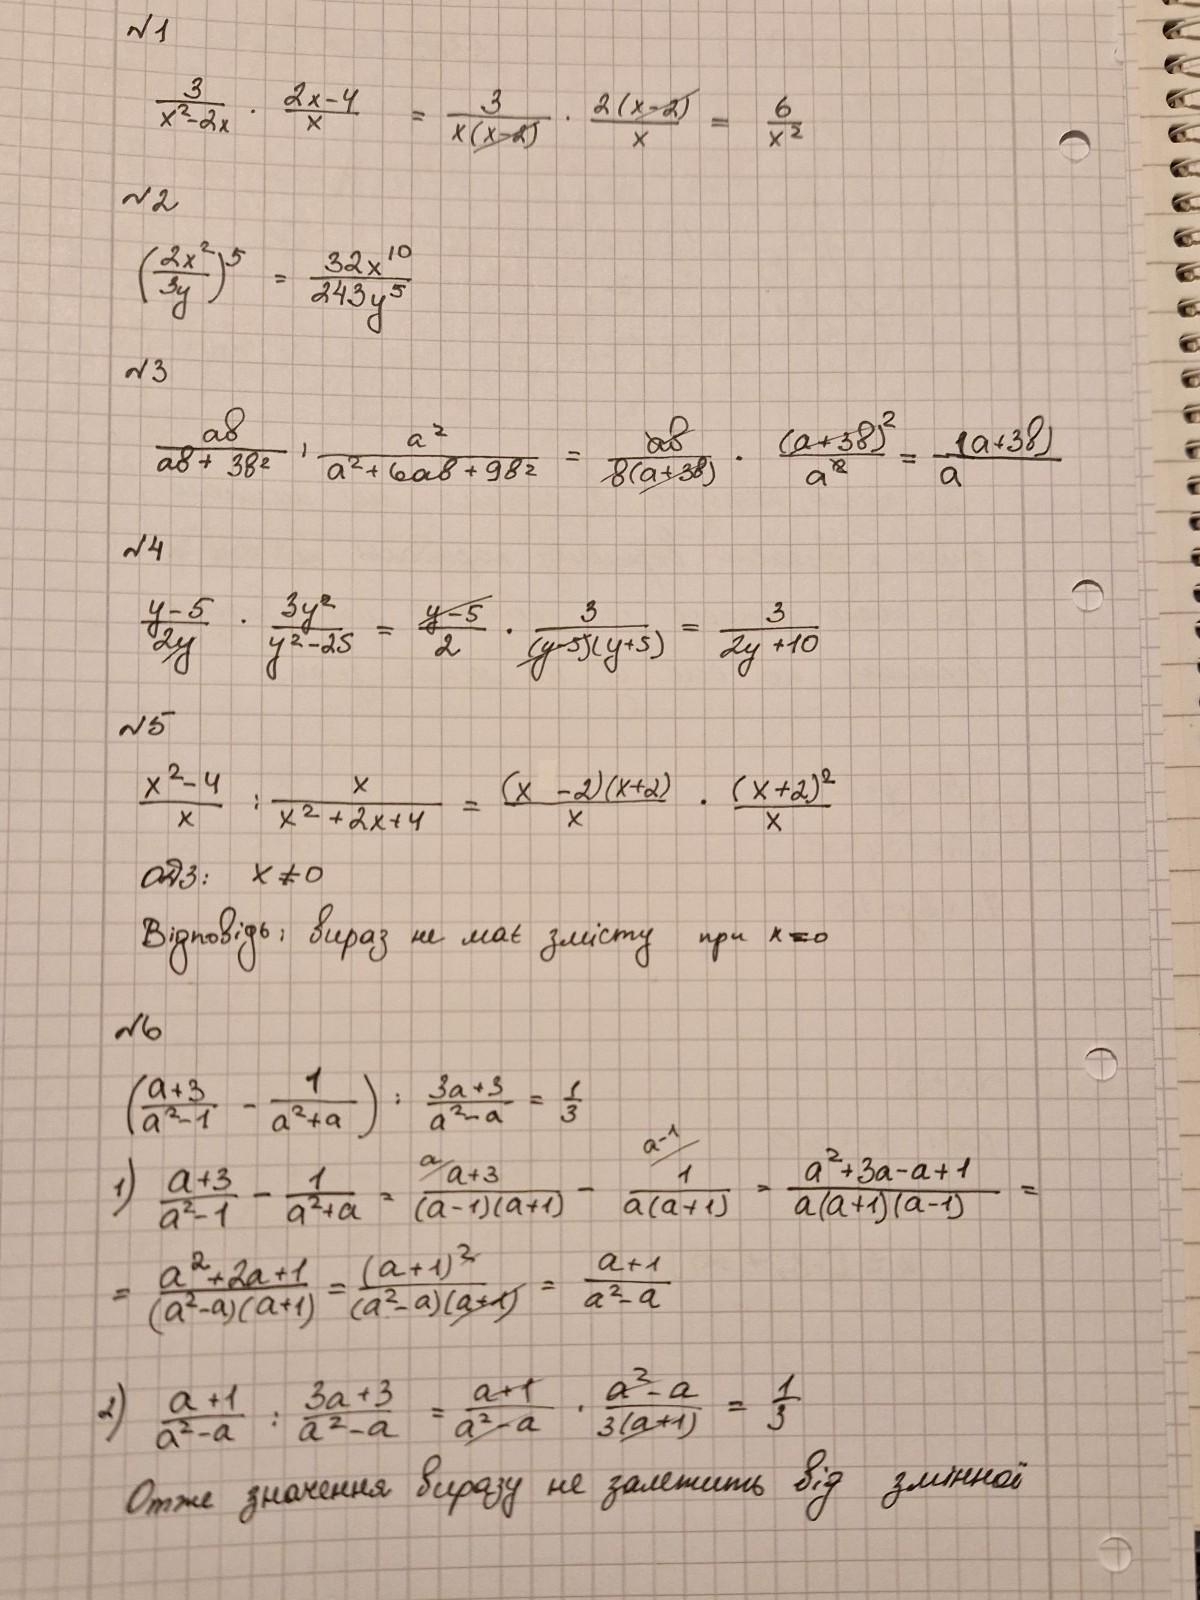 №1
3/(x²-2x) · (2x-4)/x = 3/(x(x-2)) · 2(x-2)/x = 6/x²
№2
(2x²/3y)⁵ = 32x¹⁰/243y⁵
№3
ab/(ab+3b²) : a²/(a²+6ab+9b²) = ab/(b(a+3b)) · (a+3b)²/a² = 1(a+3b)/a
№4
(y-5)/2y · 3y²/(y²-25) = (y-5)/2 · 3/((y-5)(y+5)) = 3/(2y+10)
№5
(x²-4)/x : x/(x²+2x+4) = (x -2)(x+2)/x · (x+2)²/x
ОДЗ: x≠0
Відповідь: вираз не має змісту при x=0
№6
((a+3)/(a²-1) - 1/(a²+a)) : (3a+3)/(a²-a) = 1/3
1) (a+3)/(a²-1) - 1/(a²+a) = a/ (a+3)/((a-1)(a+1)) - a-1/ 1/(a(a+1)) = (a²+3a-a+1)/(a(a+1)(a-1)) =
= (a²+2a+1)/((a²-a)(a+1)) = (a+1)²/((a²-a)(a+1)) = (a+1)/(a²-a)
2) (a+1)/(a²-a) : (3a+3)/(a²-a) = (a+1)/(a²-a) · (a²-a)/(3(a+1)) = 1/3
Отже значення виразу не залежить від змінної